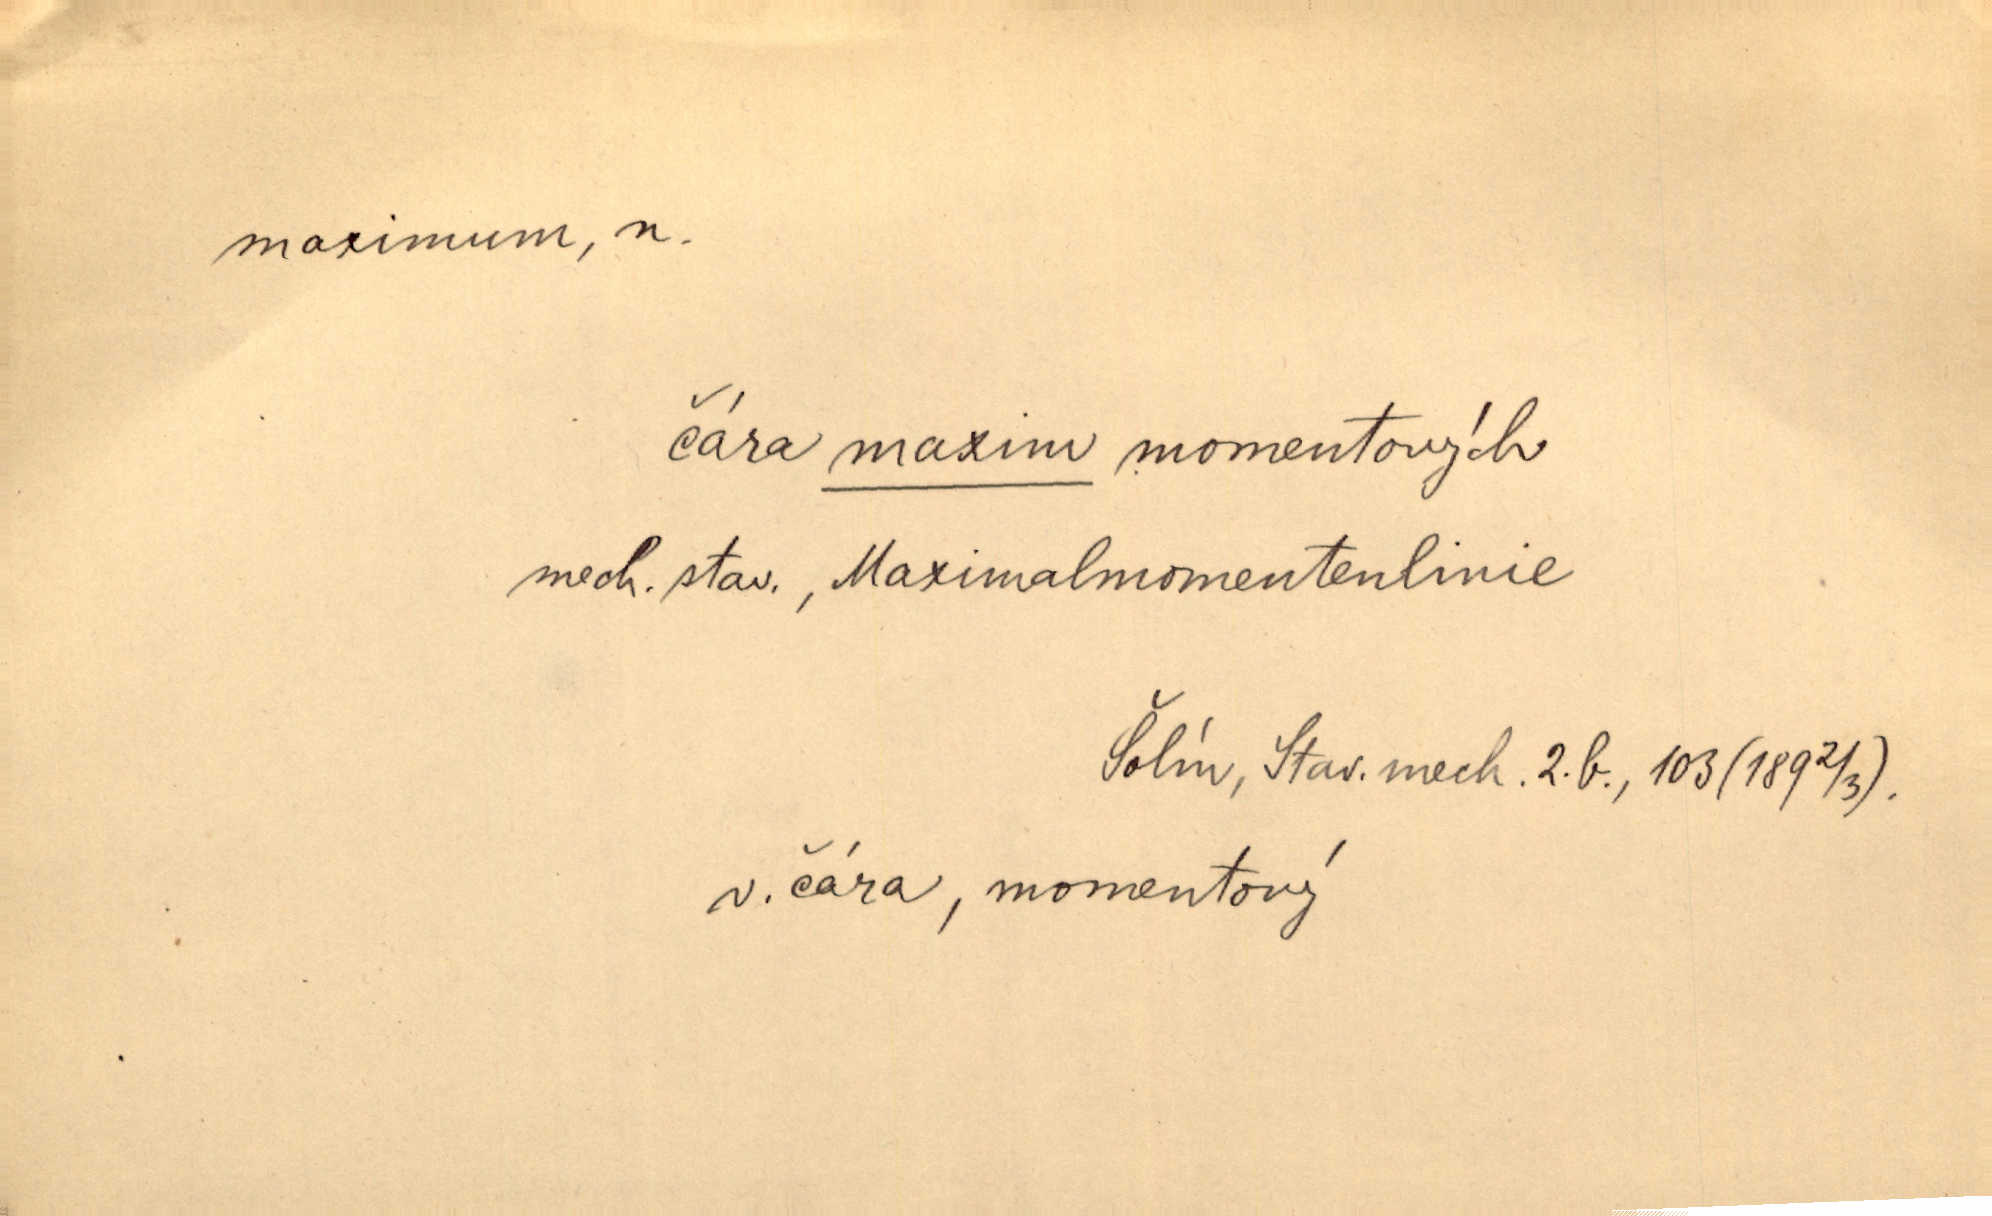 maximum, n.
čára maxim momentových
mech. stav., Maximalmomentenlinie
Šolín, Stav. mech. 2. b., 103 (189 2/3).
v. čára, momentový